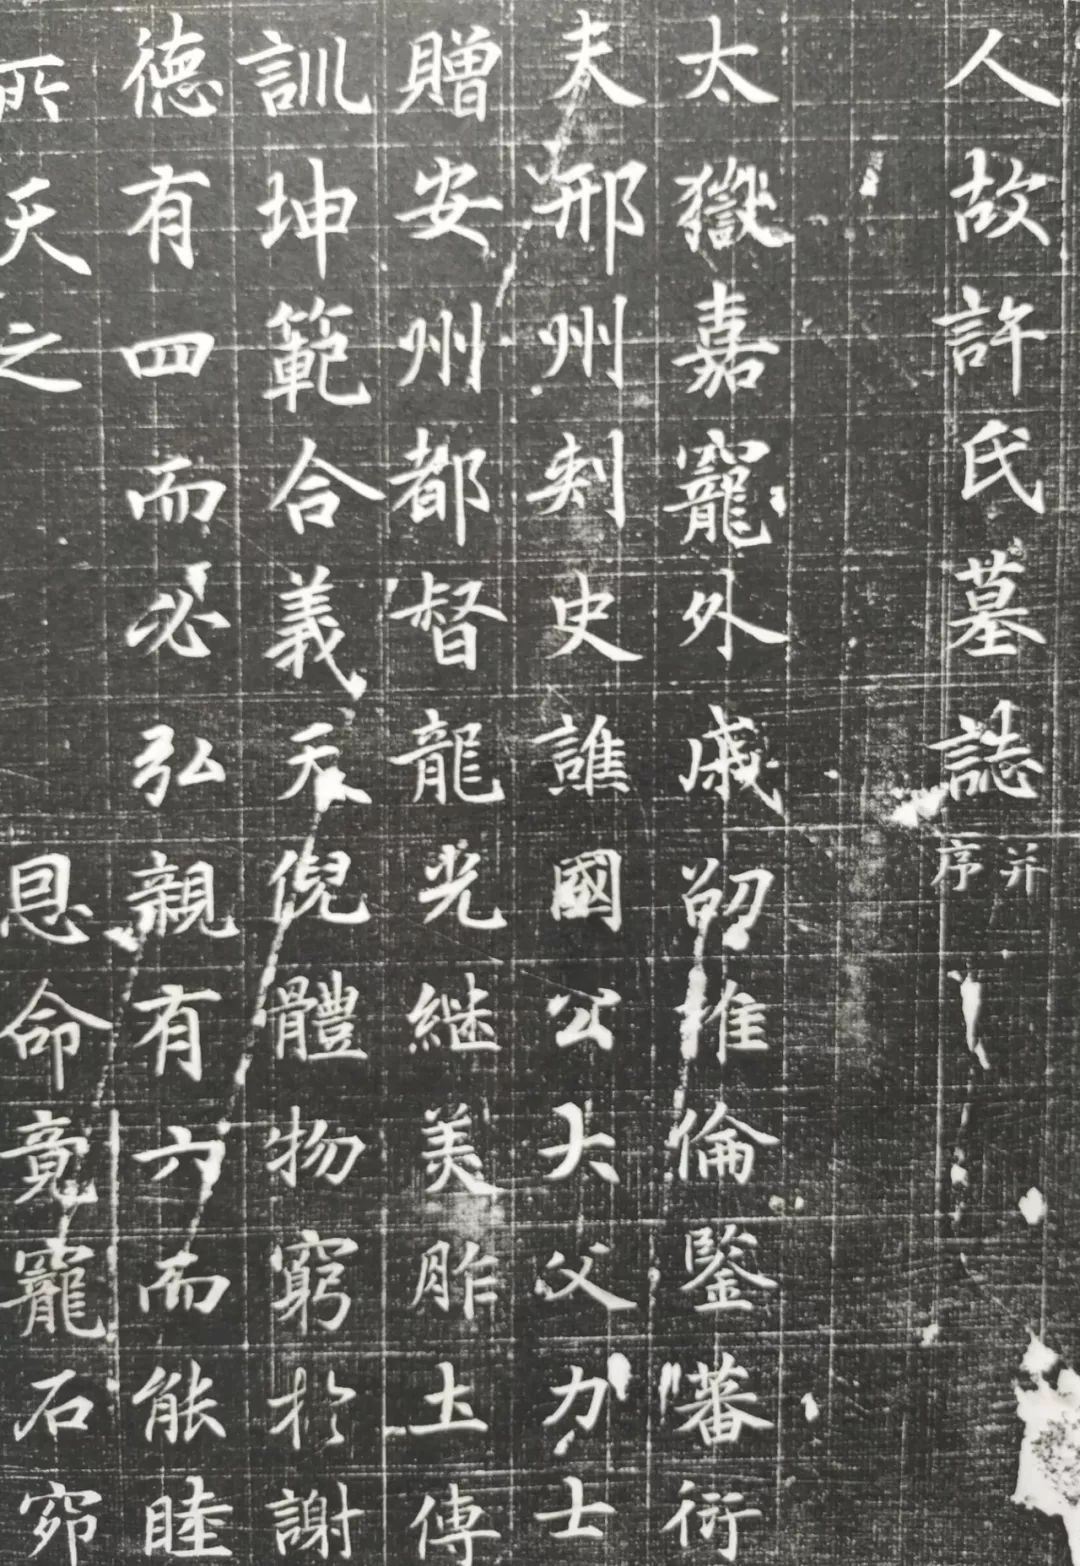 人故許氏墓誌并序
太嶽嘉寵外戚劭推倫鑒蕃衍
夫邢州刾史譙國公大父力士
贈安州都督龍光継美胙土傳
訓坤範合義天倪體物窮於謝
德有四而必弘親有六而能睦
所天之 恩命竟寵石窌